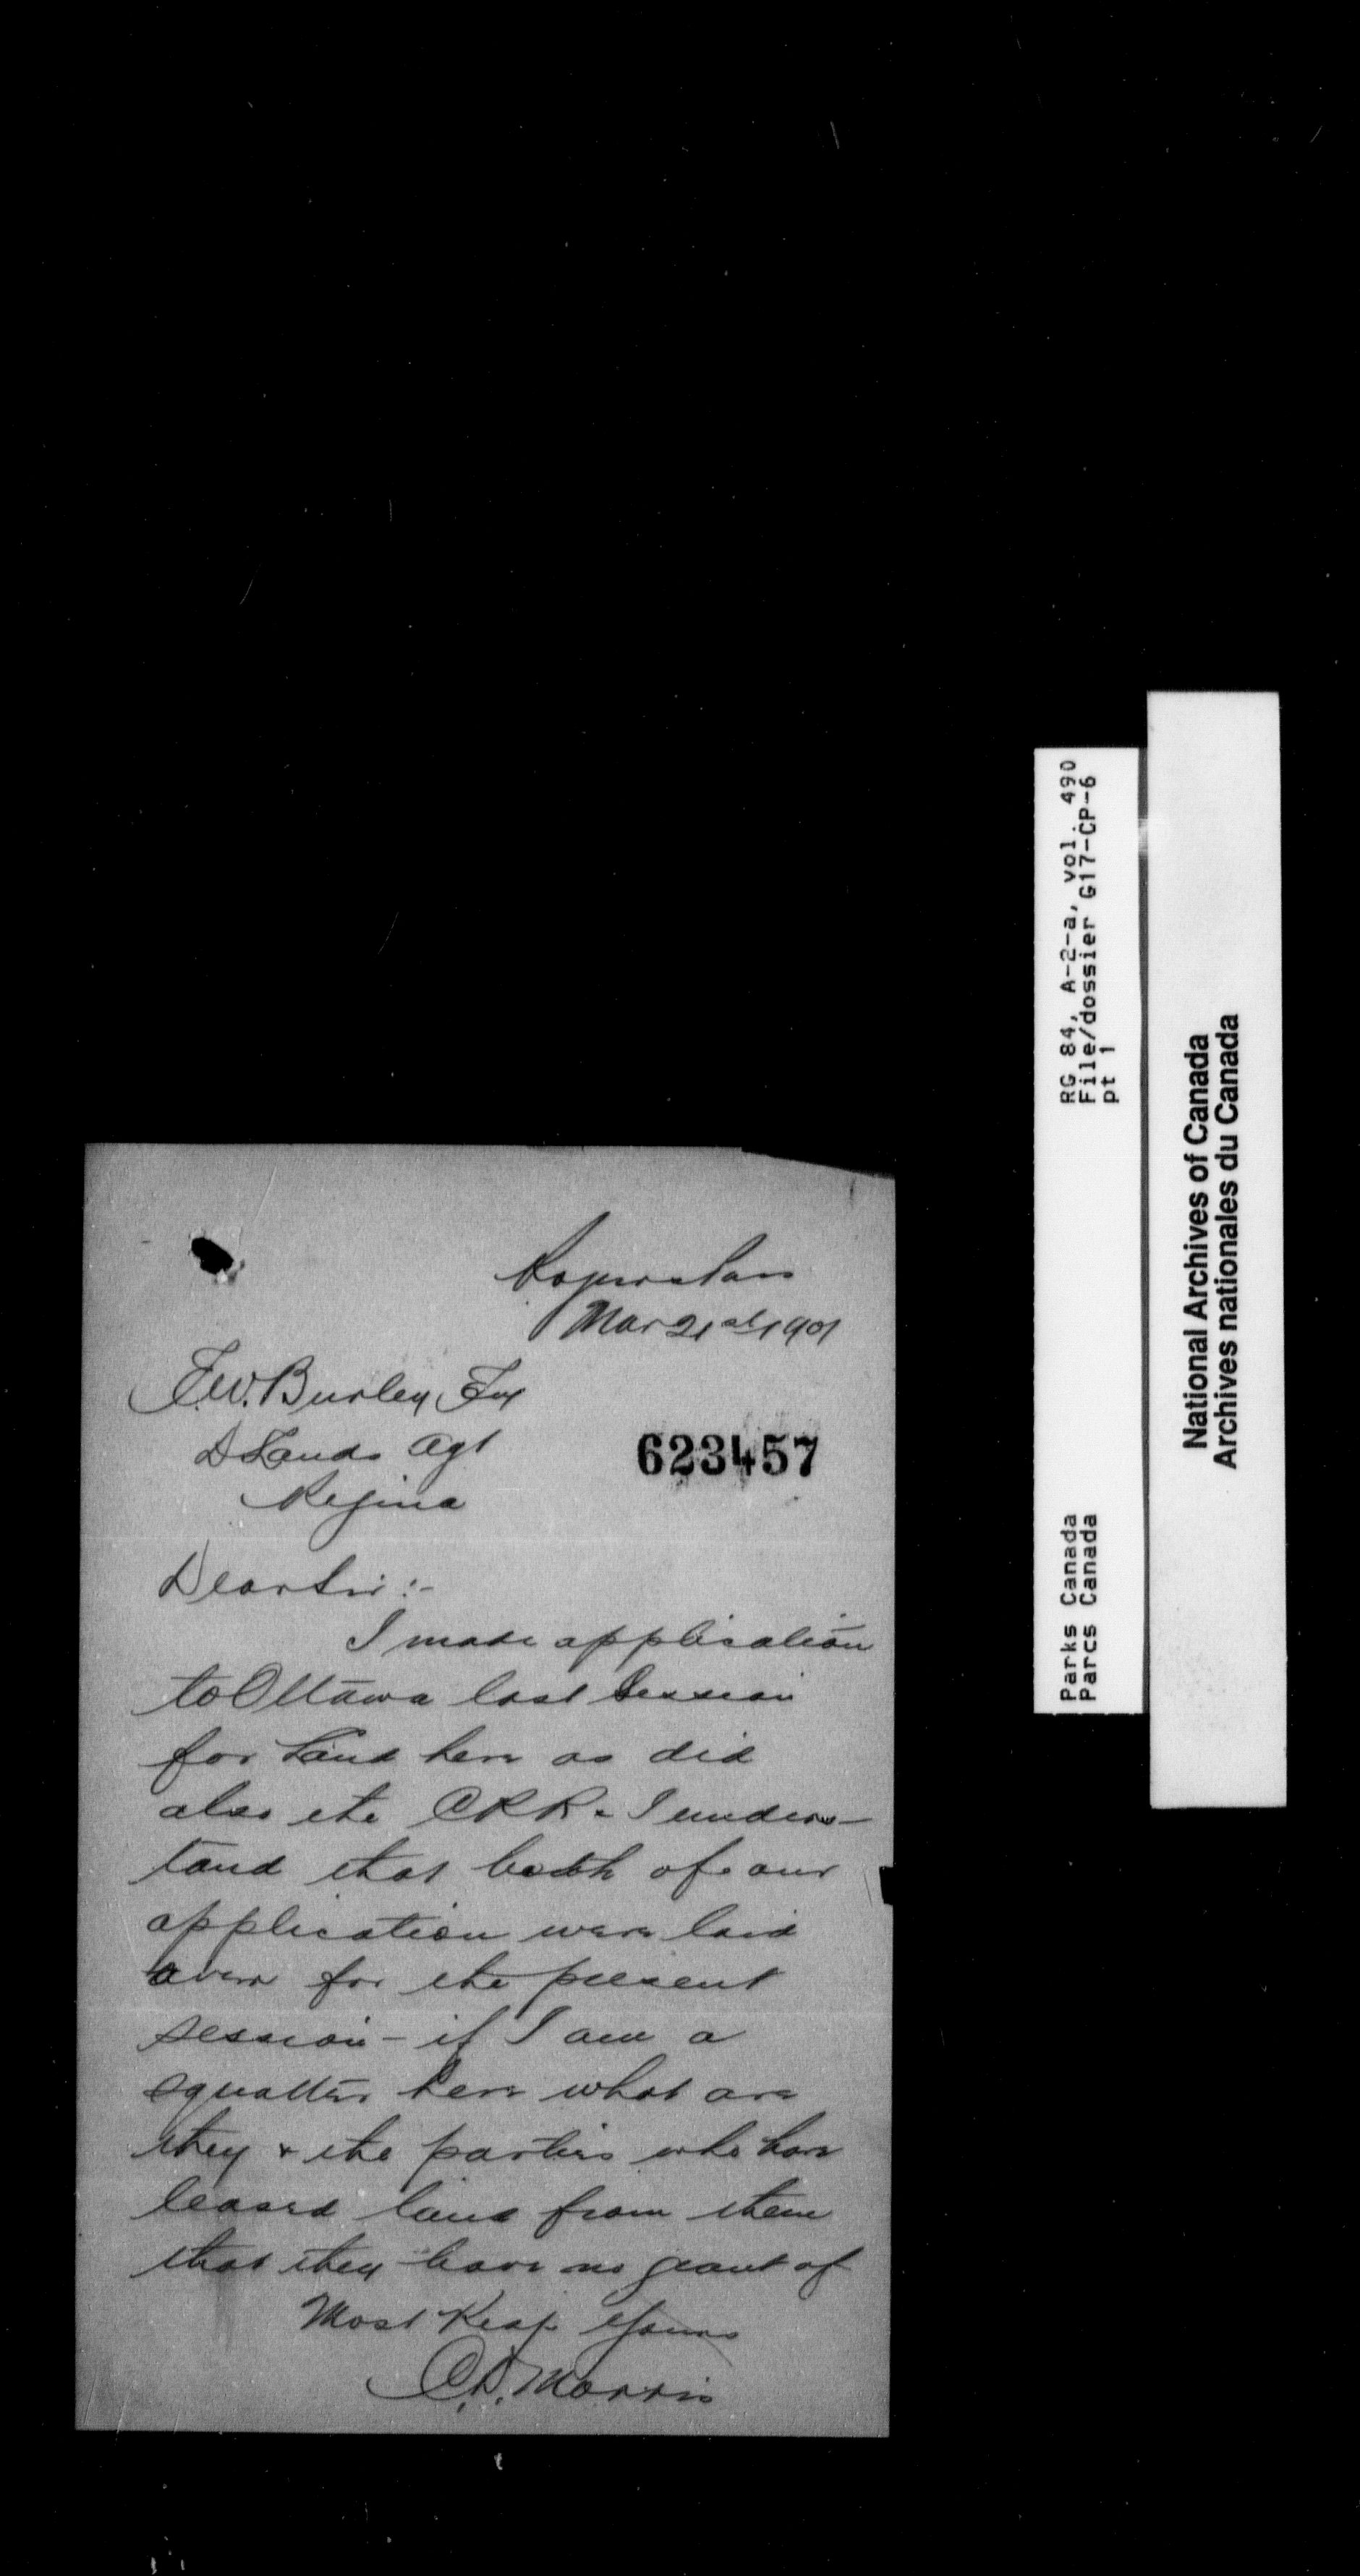 Rogers Pass
Mar 21st 1901
F.W. Burley Esq
D Lands Agt
Regina
623457
Dear Sir :-
I made application
to Ottawa last Session
for Land here as did
also the C.P.R. I unders-
tand that both of our
application were laid
over for the present
session - if I am a
squatter here what are
they & the parties who have
leased land from them
that they have no grant of
Most Resp Yours
C.D. Morris
RG 84, A-2-a, vol. 490
File/dossier G17-CP-6
pt 1
Parks Canada
Parcs Canada
National Archives of Canada
Archives nationales du Canada